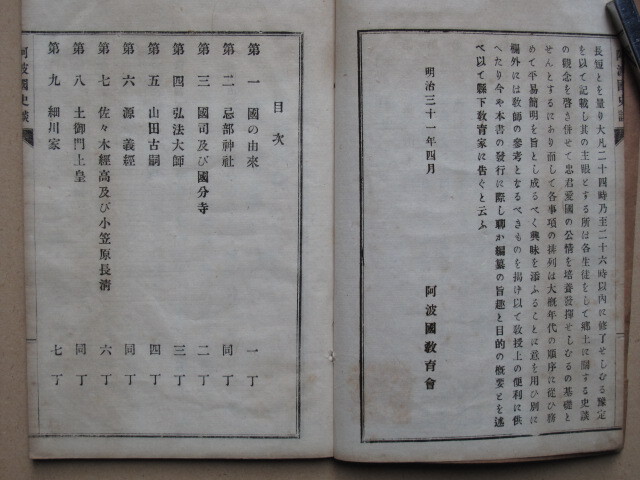 長短とを量り大凡二十四時乃至二十六時以内に修了せしむる豫定
を以て記載し其の主眼とする所は各生徒をして郷土に關する史談
の觀念を啓き併せて忠君愛國の公情を培養發揮せしむるの基礎と
せんとするにあり而して各事項の排列は大概年代の順序に從ひ務
めて平易簡明を旨とし成るべく興味を添ふることに意を用ひ別に
欄外には敎師の參考となるべきものを掲け以て敎授上の便利に供
へたり今や本書の發行に際し聊か編纂の旨趣と目的の概要とを述
べ以て縣下敎育家に告ぐと云ふ
明治三十一年四月
阿波國敎育會
阿波國史談
目次
第一 國の由來 一丁
第二 忌部神社 同丁
第三 國司及び國分寺 二丁
第四 弘法大師 三丁
第五 山田古嗣 四丁
第六 源義經 同丁
第七 佐々木經高及び小笠原長淸 六丁
第八 土御門上皇 同丁
第九 細川家 七丁
阿波國史談